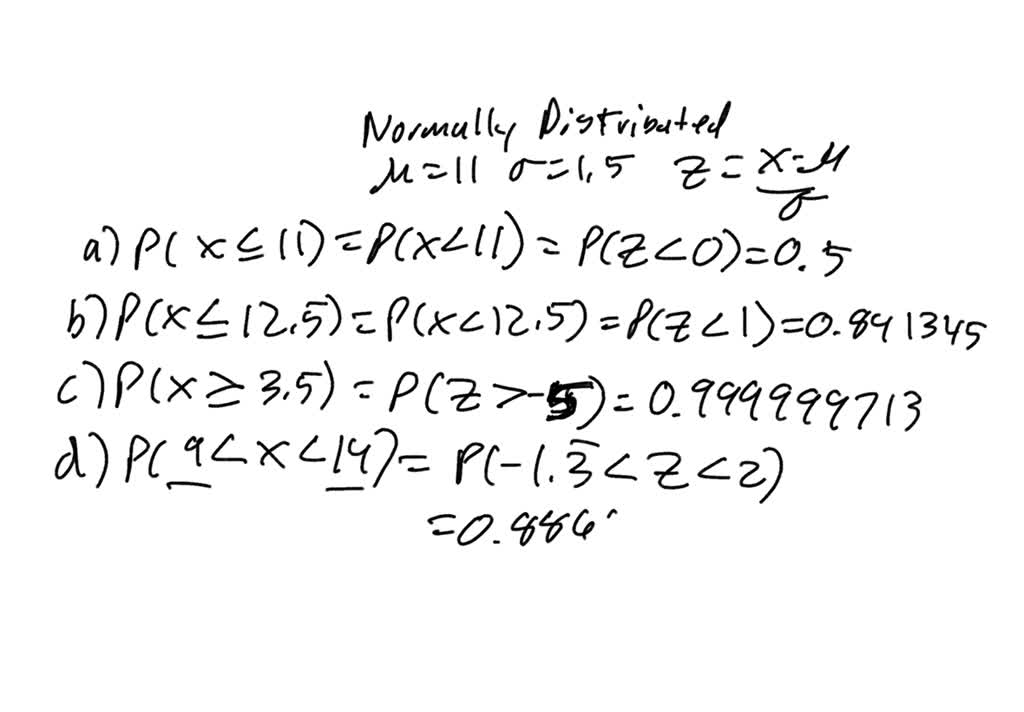 Normally Distributed
μ=11 σ=1.5 z=x-μ/σ
a) P(x≤11)=P(x<11)=P(z<0)=0.5
b) P(x≤12.5)=P(x<12.5)=P(z<1)=0.841345
c) P(x≥3.5)=P(z>-5)=0.999999713
d) P(9<x<14)=P(-1.3̅<z<2)
=0.886